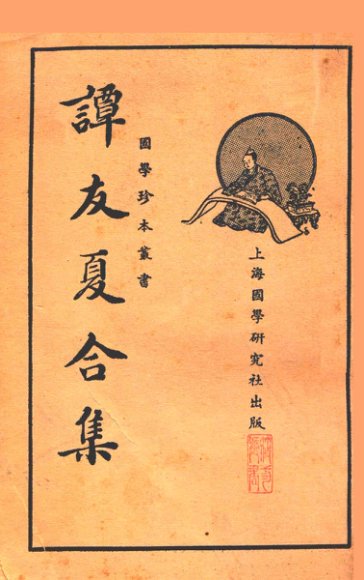 上海國學研究社出版
國學珍本叢書
譚友夏合集